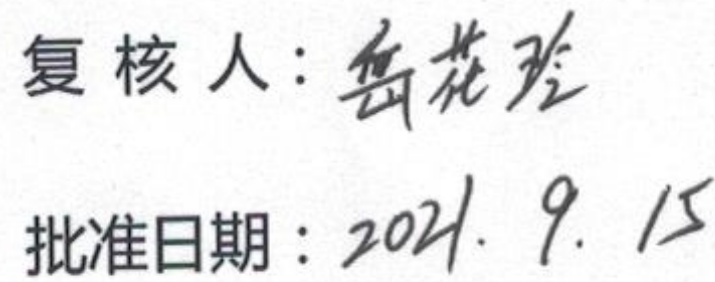 复核人：岳花玲
批准日期：2021.9.15